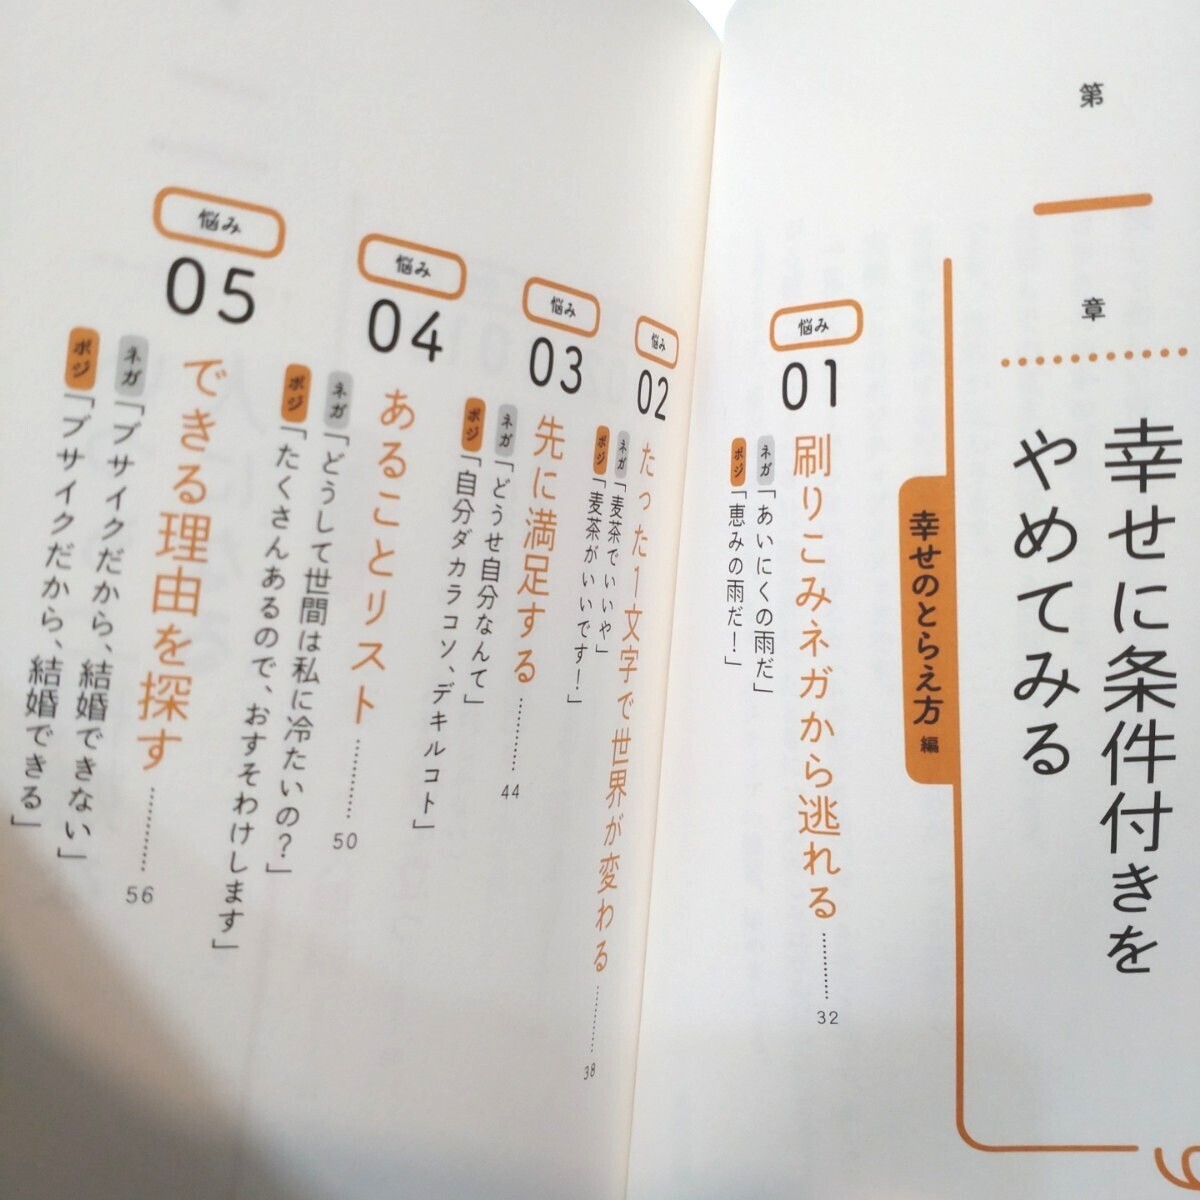 第一章
幸せに条件付きを
やめてみる
幸せのとらえ方 編
悩み
01
刷りこみネガから逃れる
32
ネガ「あいにくの雨だ」
ポジ「恵みの雨だ！」
悩み
02
たった1文字で世界が変わる
38
ネガ「麦茶でいいや」
ポジ「麦茶がいいです！」
悩み
03
先に満足する
44
ネガ「どうせ自分なんて」
ポジ「自分ダカラコソ、デキルコト」
悩み
04
あることリスト
50
ネガ「どうして世間は私に冷たいの？」
ポジ「たくさんあるので、おすそわけします」
悩み
05
できる理由を探す
56
ネガ「ブサイクだから、結婚できない」
ポジ「ブサイクだから、結婚できる」